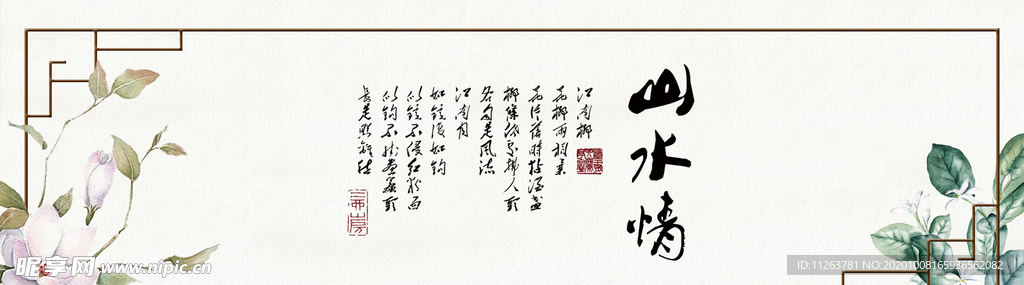 山水情
江南柳
花柳兩相柔
花片落時粘酒盞
柳條低處拂人頭
各自是風流
江南月
如鏡復如鉤
似鏡不侵紅粉面
似鉤不挂畫簾頭
長是照離愁
昵享网 www.nipic.cn
ID:11263781 NO:20201008165936562082